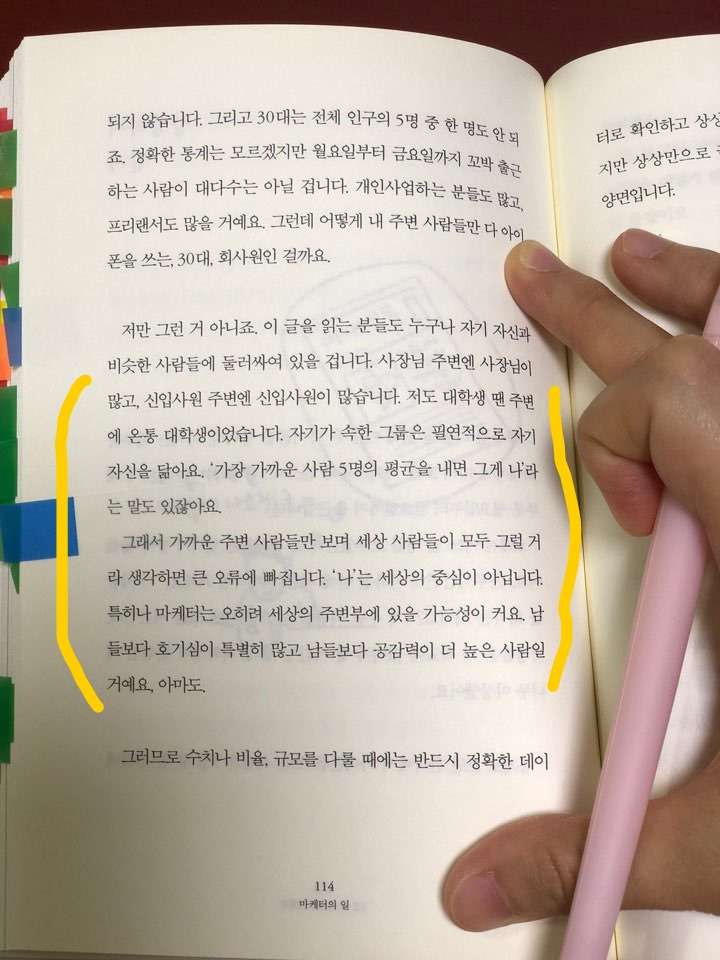 되지 않습니다. 그리고 30대는 전체 인구의 5명 중 한 명도 안 되
죠. 정확한 통계는 모르겠지만 월요일부터 금요일까지 꼬박 출근
하는 사람이 대다수는 아닐 겁니다. 개인사업하는 분들도 많고,
프리랜서도 많을 거예요. 그런데 어떻게 내 주변 사람들만 다 아이
폰을 쓰는, 30대, 회사원인 걸까요.
저만 그런 거 아니죠. 이 글을 읽는 분들도 누구나 자기 자신과
비슷한 사람들에 둘러싸여 있을 겁니다. 사장님 주변엔 사장님이
많고, 신입사원 주변엔 신입사원이 많습니다. 저도 대학생 땐 주변
에 온통 대학생이었습니다. 자기가 속한 그룹은 필연적으로 자기
자신을 닮아요. ‘가장 가까운 사람 5명의 평균을 내면 그게 나’라
는 말도 있잖아요.
그래서 가까운 주변 사람들만 보며 세상 사람들이 모두 그럴 거
라 생각하면 큰 오류에 빠집니다. ‘나’는 세상의 중심이 아닙니다.
특히나 마케터는 오히려 세상의 주변부에 있을 가능성이 커요. 남
들보다 호기심이 특별히 많고 남들보다 공감력이 더 높은 사람일
거예요, 아마도.
그러므로 수치나 비율, 규모를 다룰 때에는 반드시 정확한 데이
114
마케터의 일
터로 확인하고
지만 상상만으로
양면입니다.